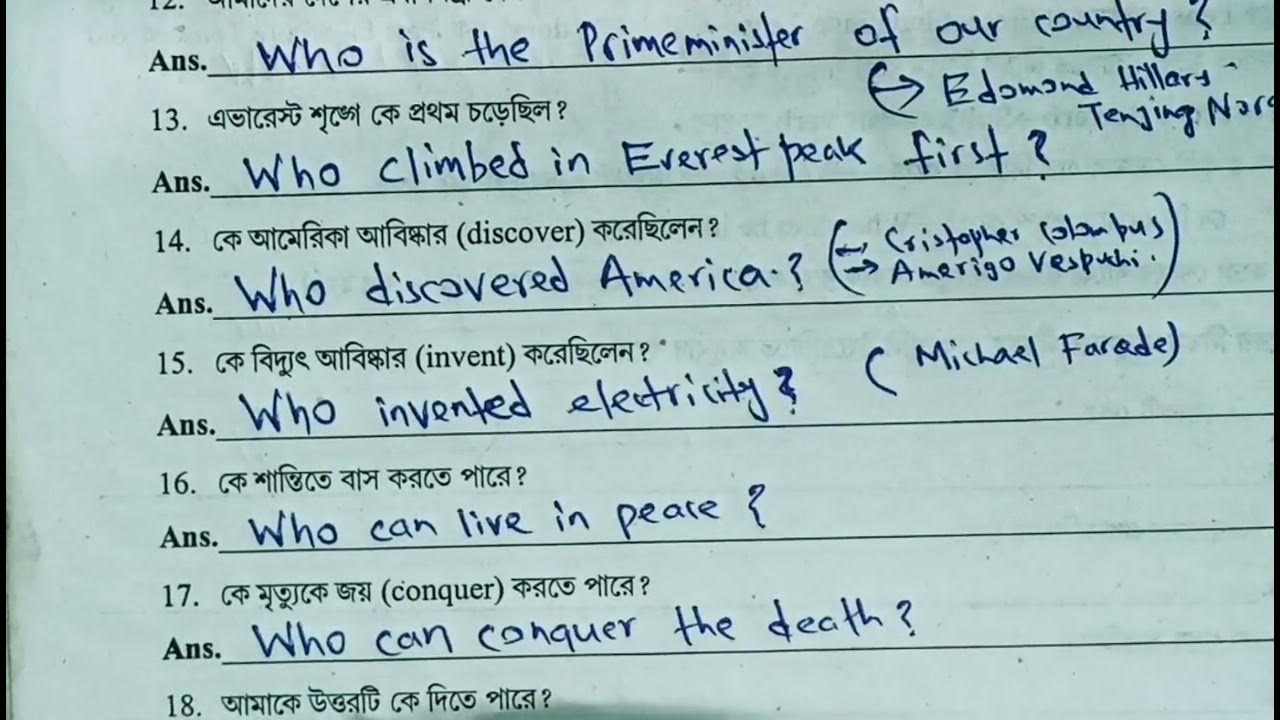 Ans. Who is the Primeminister of our country?
→ Edomond Hillary
Tenjing Norg
13. এভারেস্ট শৃঙ্গে কে প্রথম চড়েছিল?
Ans. Who climbed in Everest peak first?
14. কে আমেরিকা আবিষ্কার (discover) করেছিলেন?
(→ Cristopher Colombus
→ Amerigo Vespuhi.)
Ans. Who discovered America?
15. কে বিদ্যুৎ আবিষ্কার (invent) করেছিলেন?
(Michael Farade)
Ans. Who invented electricity?
16. কে শান্তিতে বাস করতে পারে?
Ans. Who can live in peace?
17. কে মৃত্যুকে জয় (conquer) করতে পারে?
Ans. Who can conquer the death?
18. আমাকে উত্তরটি কে দিতে পারে?